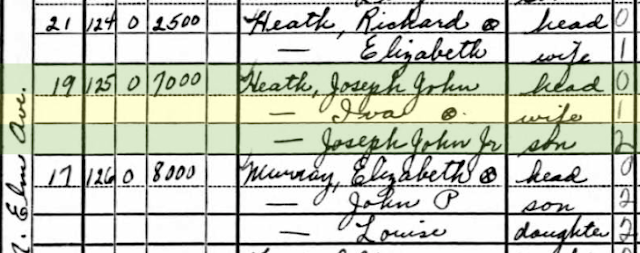 21 124 0 2500 Heath, Richard ⊗ head 0
— Elizabeth wife 1
19 125 0 7000 Heath, Joseph John head 0
— Iva ⊗ wife 1
— Joseph John Jr son 2
17 126 0 8000 Murray, Elizabeth ⊗ head 0
— John P son 2
— Louise daughter 2
N. Elm Ave.